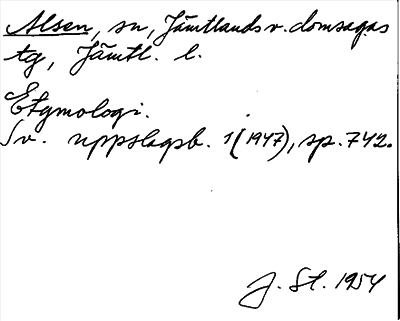 Alsen, sn, Jämtlands v. domsagas
tg, Jämtl. l.
Etymologi.
Sv. uppslagsb. 1 (1947), sp. 742.
J. St. 1954